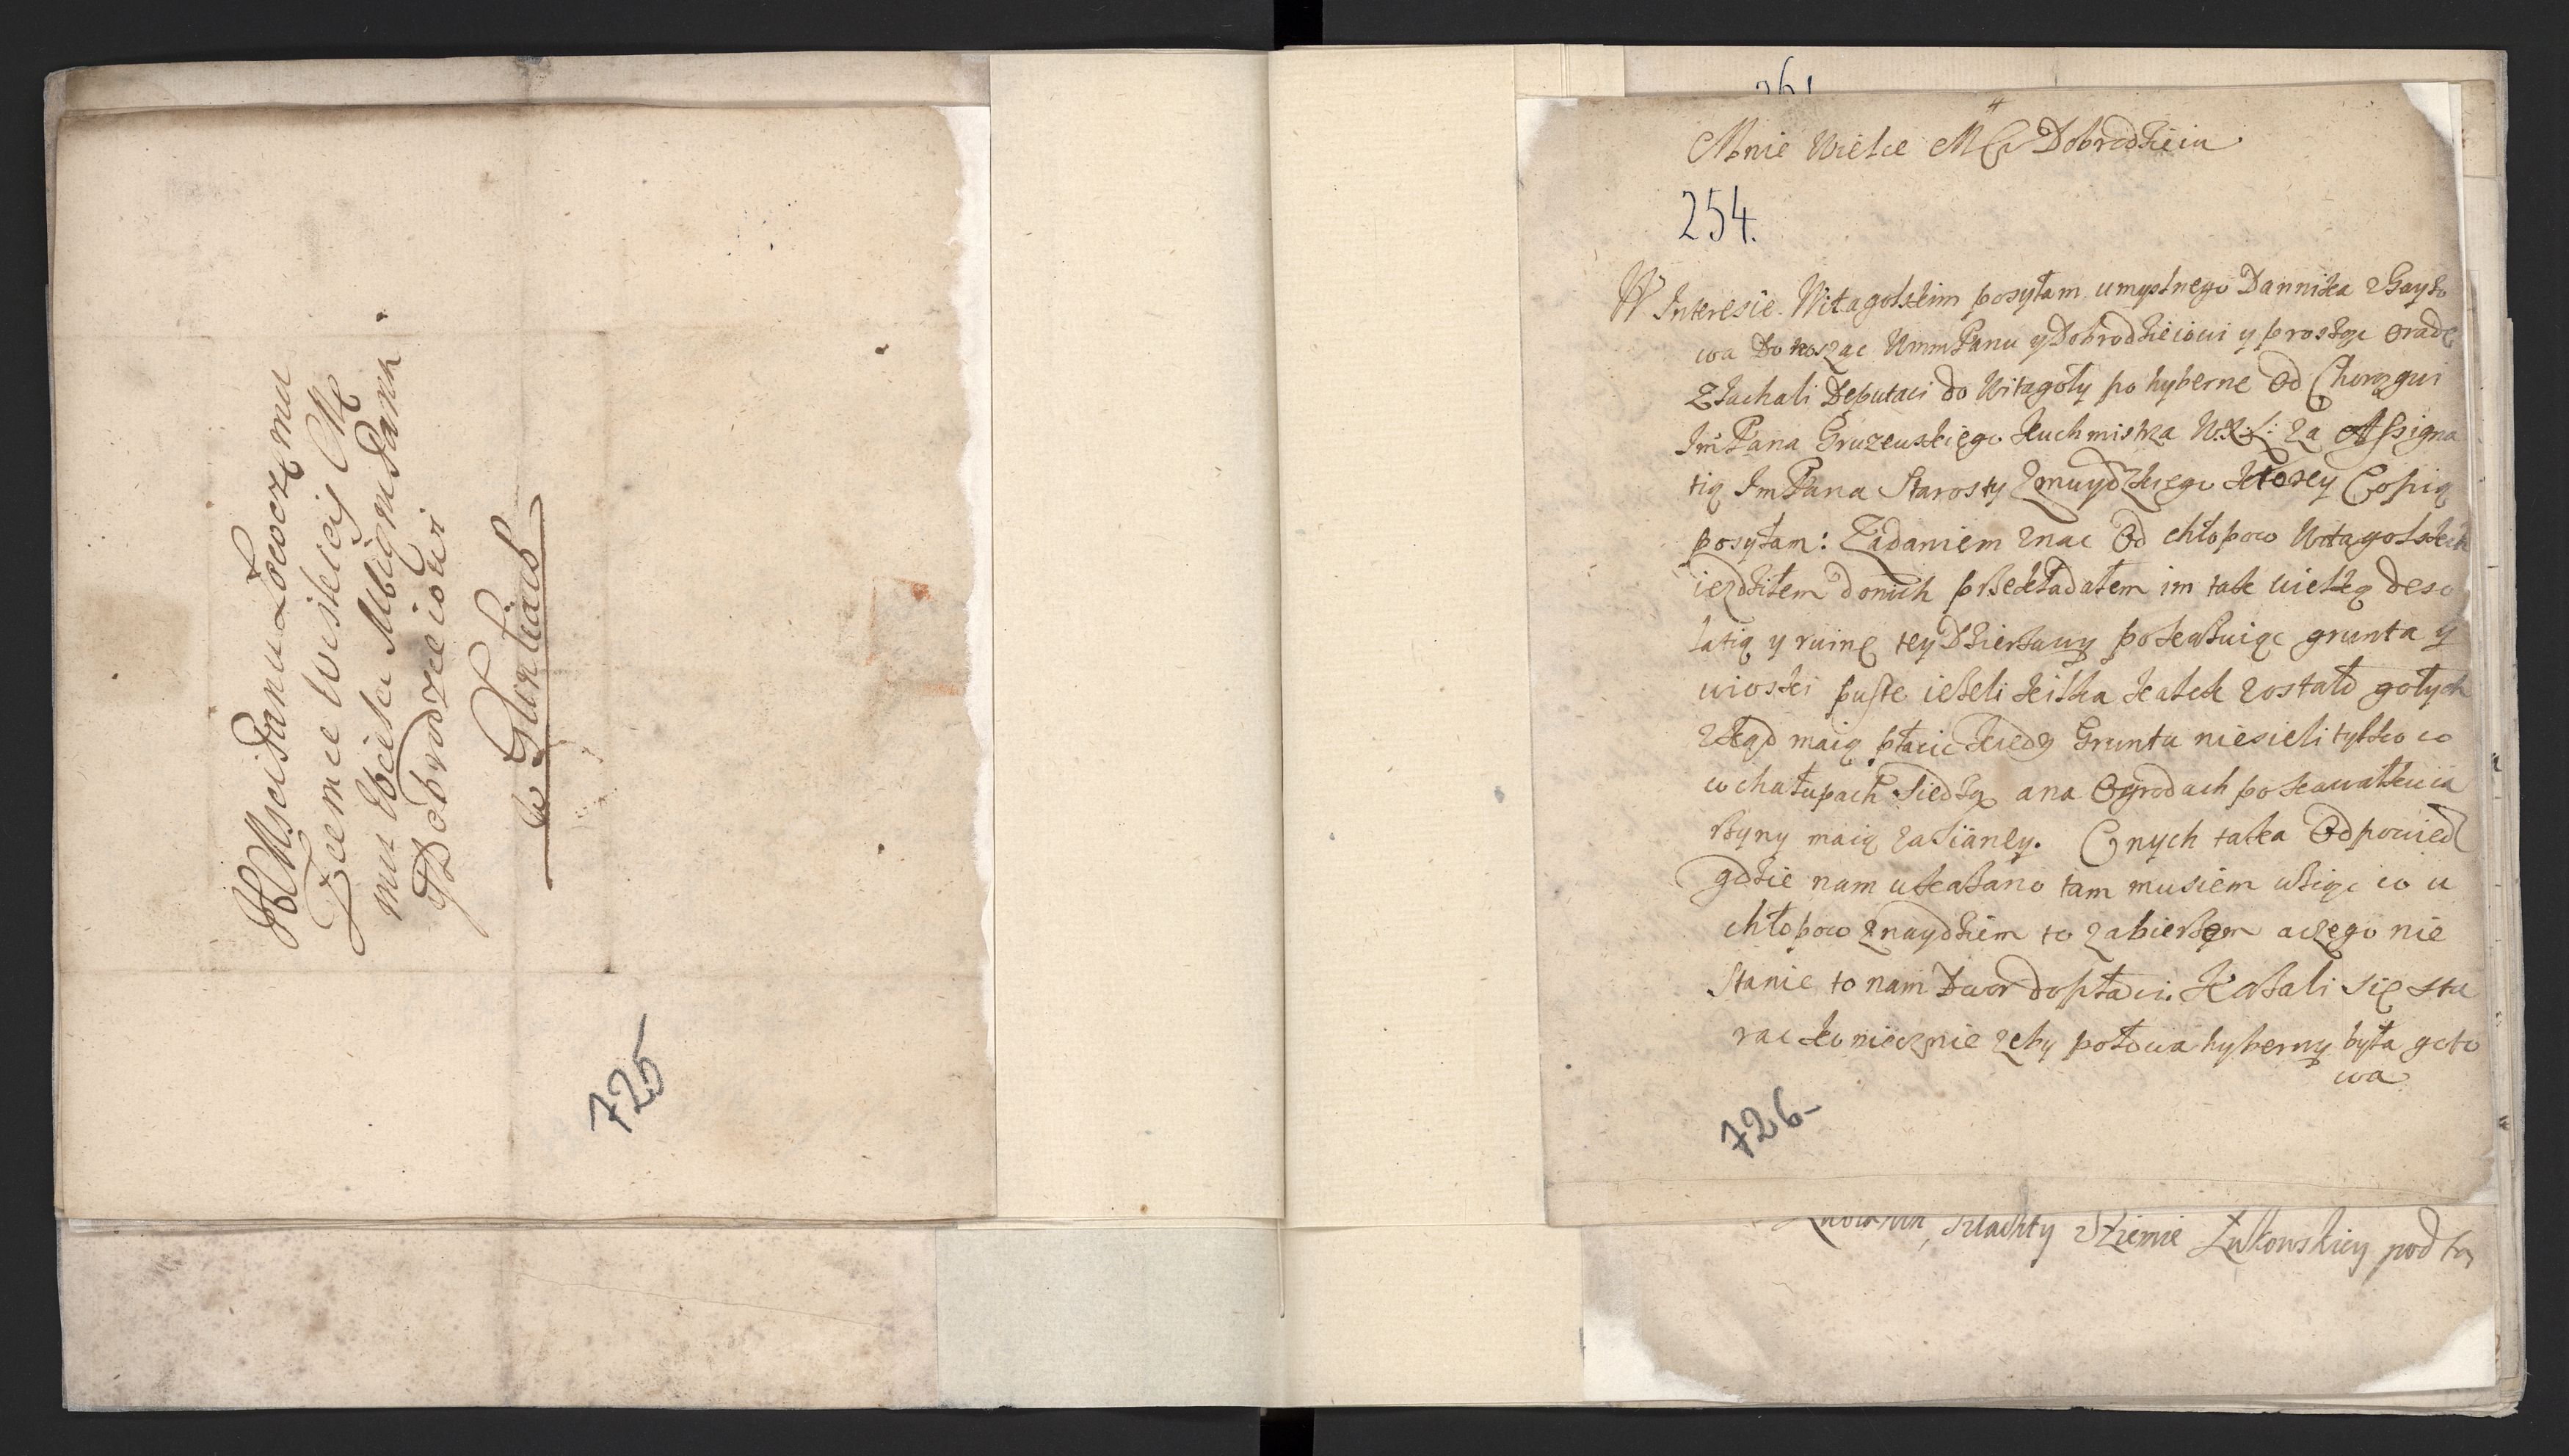 JE Mści Panu Łowczemu
Mu Wielce Memu Panu
y Dobrodzieiowi
725
Mnie Wielce M Dobrodzieiu
254.
W Interesie Witagolskim posyłam umyslnego Dannika z Gayżo
wa Donosząc WmmPanu y Dobrodzieiowi y prosząc o radę
Ziachali Deputaci do Witagoły po hybernę Od Chorągwi
Im Pana Gruzewskiego Kuchmistrza W.X.L: za Assigna
tią Im Pana Starosty Zmuydzkiego ktorey Copią
posyłam: Zadaniem znac Od chłopow Witagolskich
iezdziłem do nich przekładałem im tak wielką deso
latią y ruinę tey Dzierżawy pokazuiąc grunta y
wioski puste ieżeli kilka kalek zostało gołych
zkąd maią płacic kiedy Gruntu nie sieli tylko co
w chałupach siedzą a na Ogrodach po kawałku ia
rzyny maią zasianey. Onych taka Odpowiedz
gdzie nam ukazano tam musiem wziąc co u
chłopow znaydziem to zabierzem a czego nie
stanie to nam Dwor dopłaci. Kazali się sta
rac koniecznie zeby połowa hyberny była goto
wa
726-
szlachty Ziemie Łukowskiey pod tą